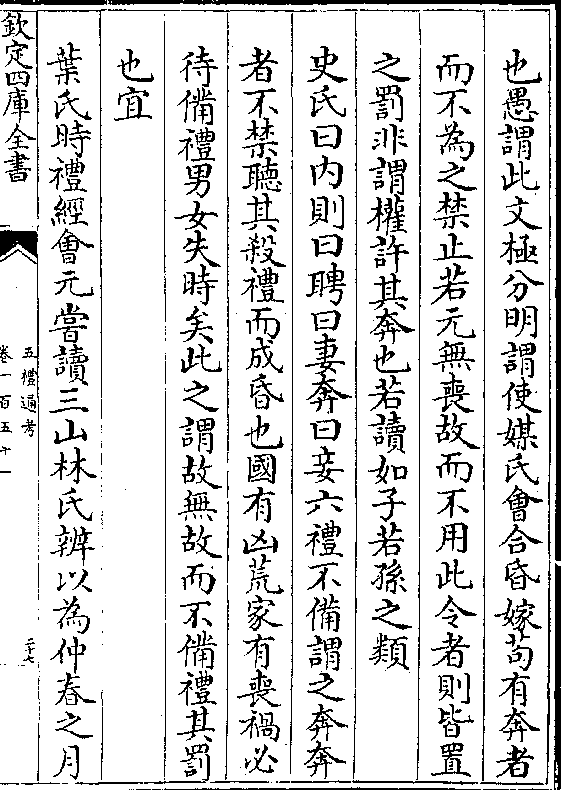 也愚謂此文極分明謂使媒氏會合昏嫁茍有奔者
而不為之禁止若元無喪故而不用此令者則皆置
之罰非謂權許其奔也若讀如子若孫之類
史氏曰内則曰聘曰妻奔曰妾六禮不備謂之奔奔
者不禁聽其殺禮而成昏也國有凶荒家有喪禍必
待備禮男女失時矣此之謂故無故而不備禮其罰
也宜
葉氏時禮經會元嘗讀三山林氏辨以為仲春之月
欽定四庫全書
五禮通考
卷一百五十一
二十七